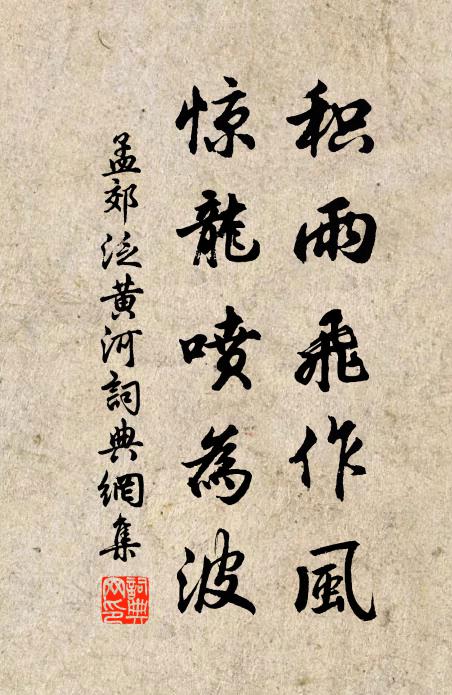 积雨飛作風
惊龍噴為波
孟郊泛黄河詞典網集
詞典网印